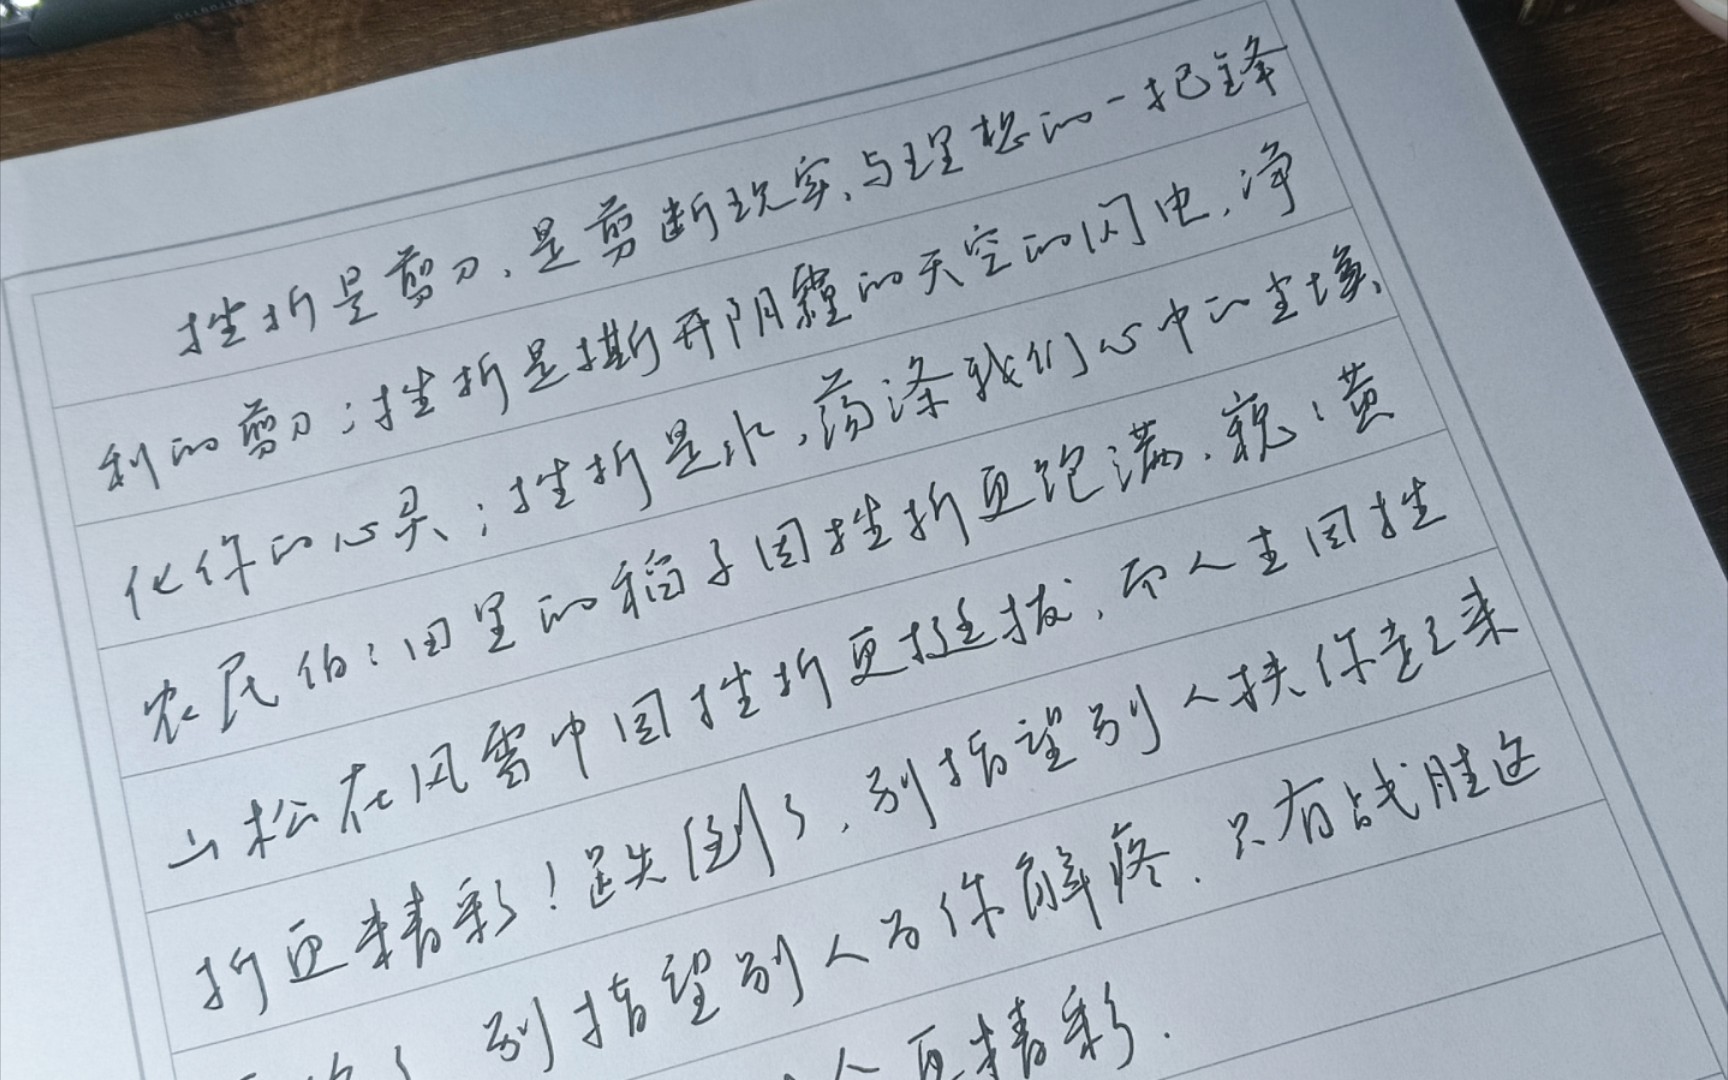 挫折是剪刀、是剪断现实、与理想的一把锋
利的剪刀；挫折是撕开阴霾的天空的闪电，净
化你的心灵；挫折是水，荡涤我们心中的尘埃、
农民伯：田里的稻子因挫折更饱满、
黄
山松在风雪中因挫折更挺拔，而人生因挫
折更精彩！跌倒了，别指望别人扶你走起来
别指望别人为你解疼．只有战胜这
人更精彩．